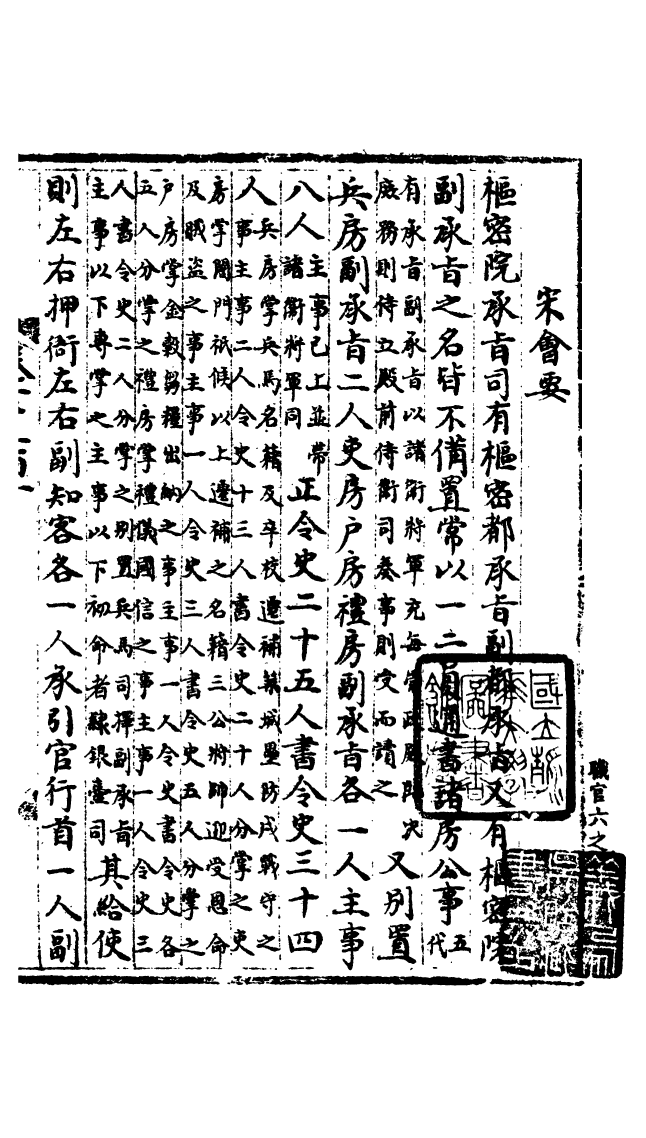 職官六之
宋會要
樞密院承旨司有樞密都承旨副都承旨又有樞密院
副承旨之名皆不備置常以一二員通書諸房公事五代
有承旨副承旨以諸衛將軍充每崇政殿臨決
庶務則侍立殿前侍衛司奏事則受而讀之
又別置
兵房副承旨二人吏房户房禮房副承旨各一人主事
八人主事已上並帶諸衛將軍同正令史二十五人書令史三十四
人兵房掌兵馬名籍及卒校遷補築城壘防戍戰守之
事主事二人令史十三人書令史二十人分掌之吏
房掌閤門祗候以上遷補之名籍三公將帥迎受恩命
及賊盜之事主事一人令史三人書令史五人分掌之
户房掌金穀芻糧出納之事主事一人令史書令史各
五人分掌之禮房掌禮儀國信之事主事一人令史三
人書令史二人分掌之别置兵馬司揮副承旨
主事以下專掌之主事以下初命者隸銀臺司其給使
則左右押衙左右副知客各一人承引官行首一人副